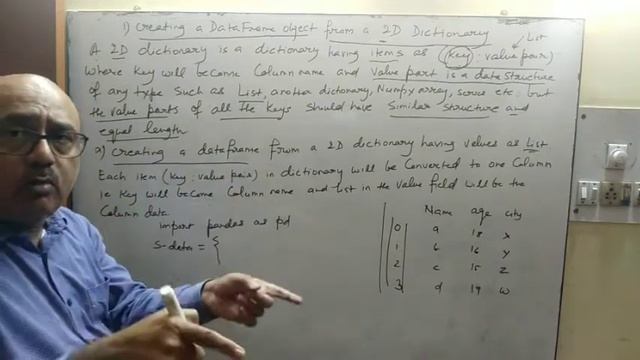 1) Creating a DataFrame object from a 2D Dictionary
List
A 2D dictionary is a dictionary having items as (key : value pair)
Where key will become Column name and value part is a data structure
of any type such as List, another dictionary, Numpy array, series etc. but
the value parts of all the keys should have similar structure and
equal length
a) Creating a dataframe from a 2D dictionary having values as List
Each item (key : value pair) in dictionary will be converted to one Column
ie key will become Column name and list in the value field will be the
Column data
import pandas as pd
S-data = {
Name age city
0 a 18 X
1 b 16 Y
2 c 15 Z
3 d 19 W